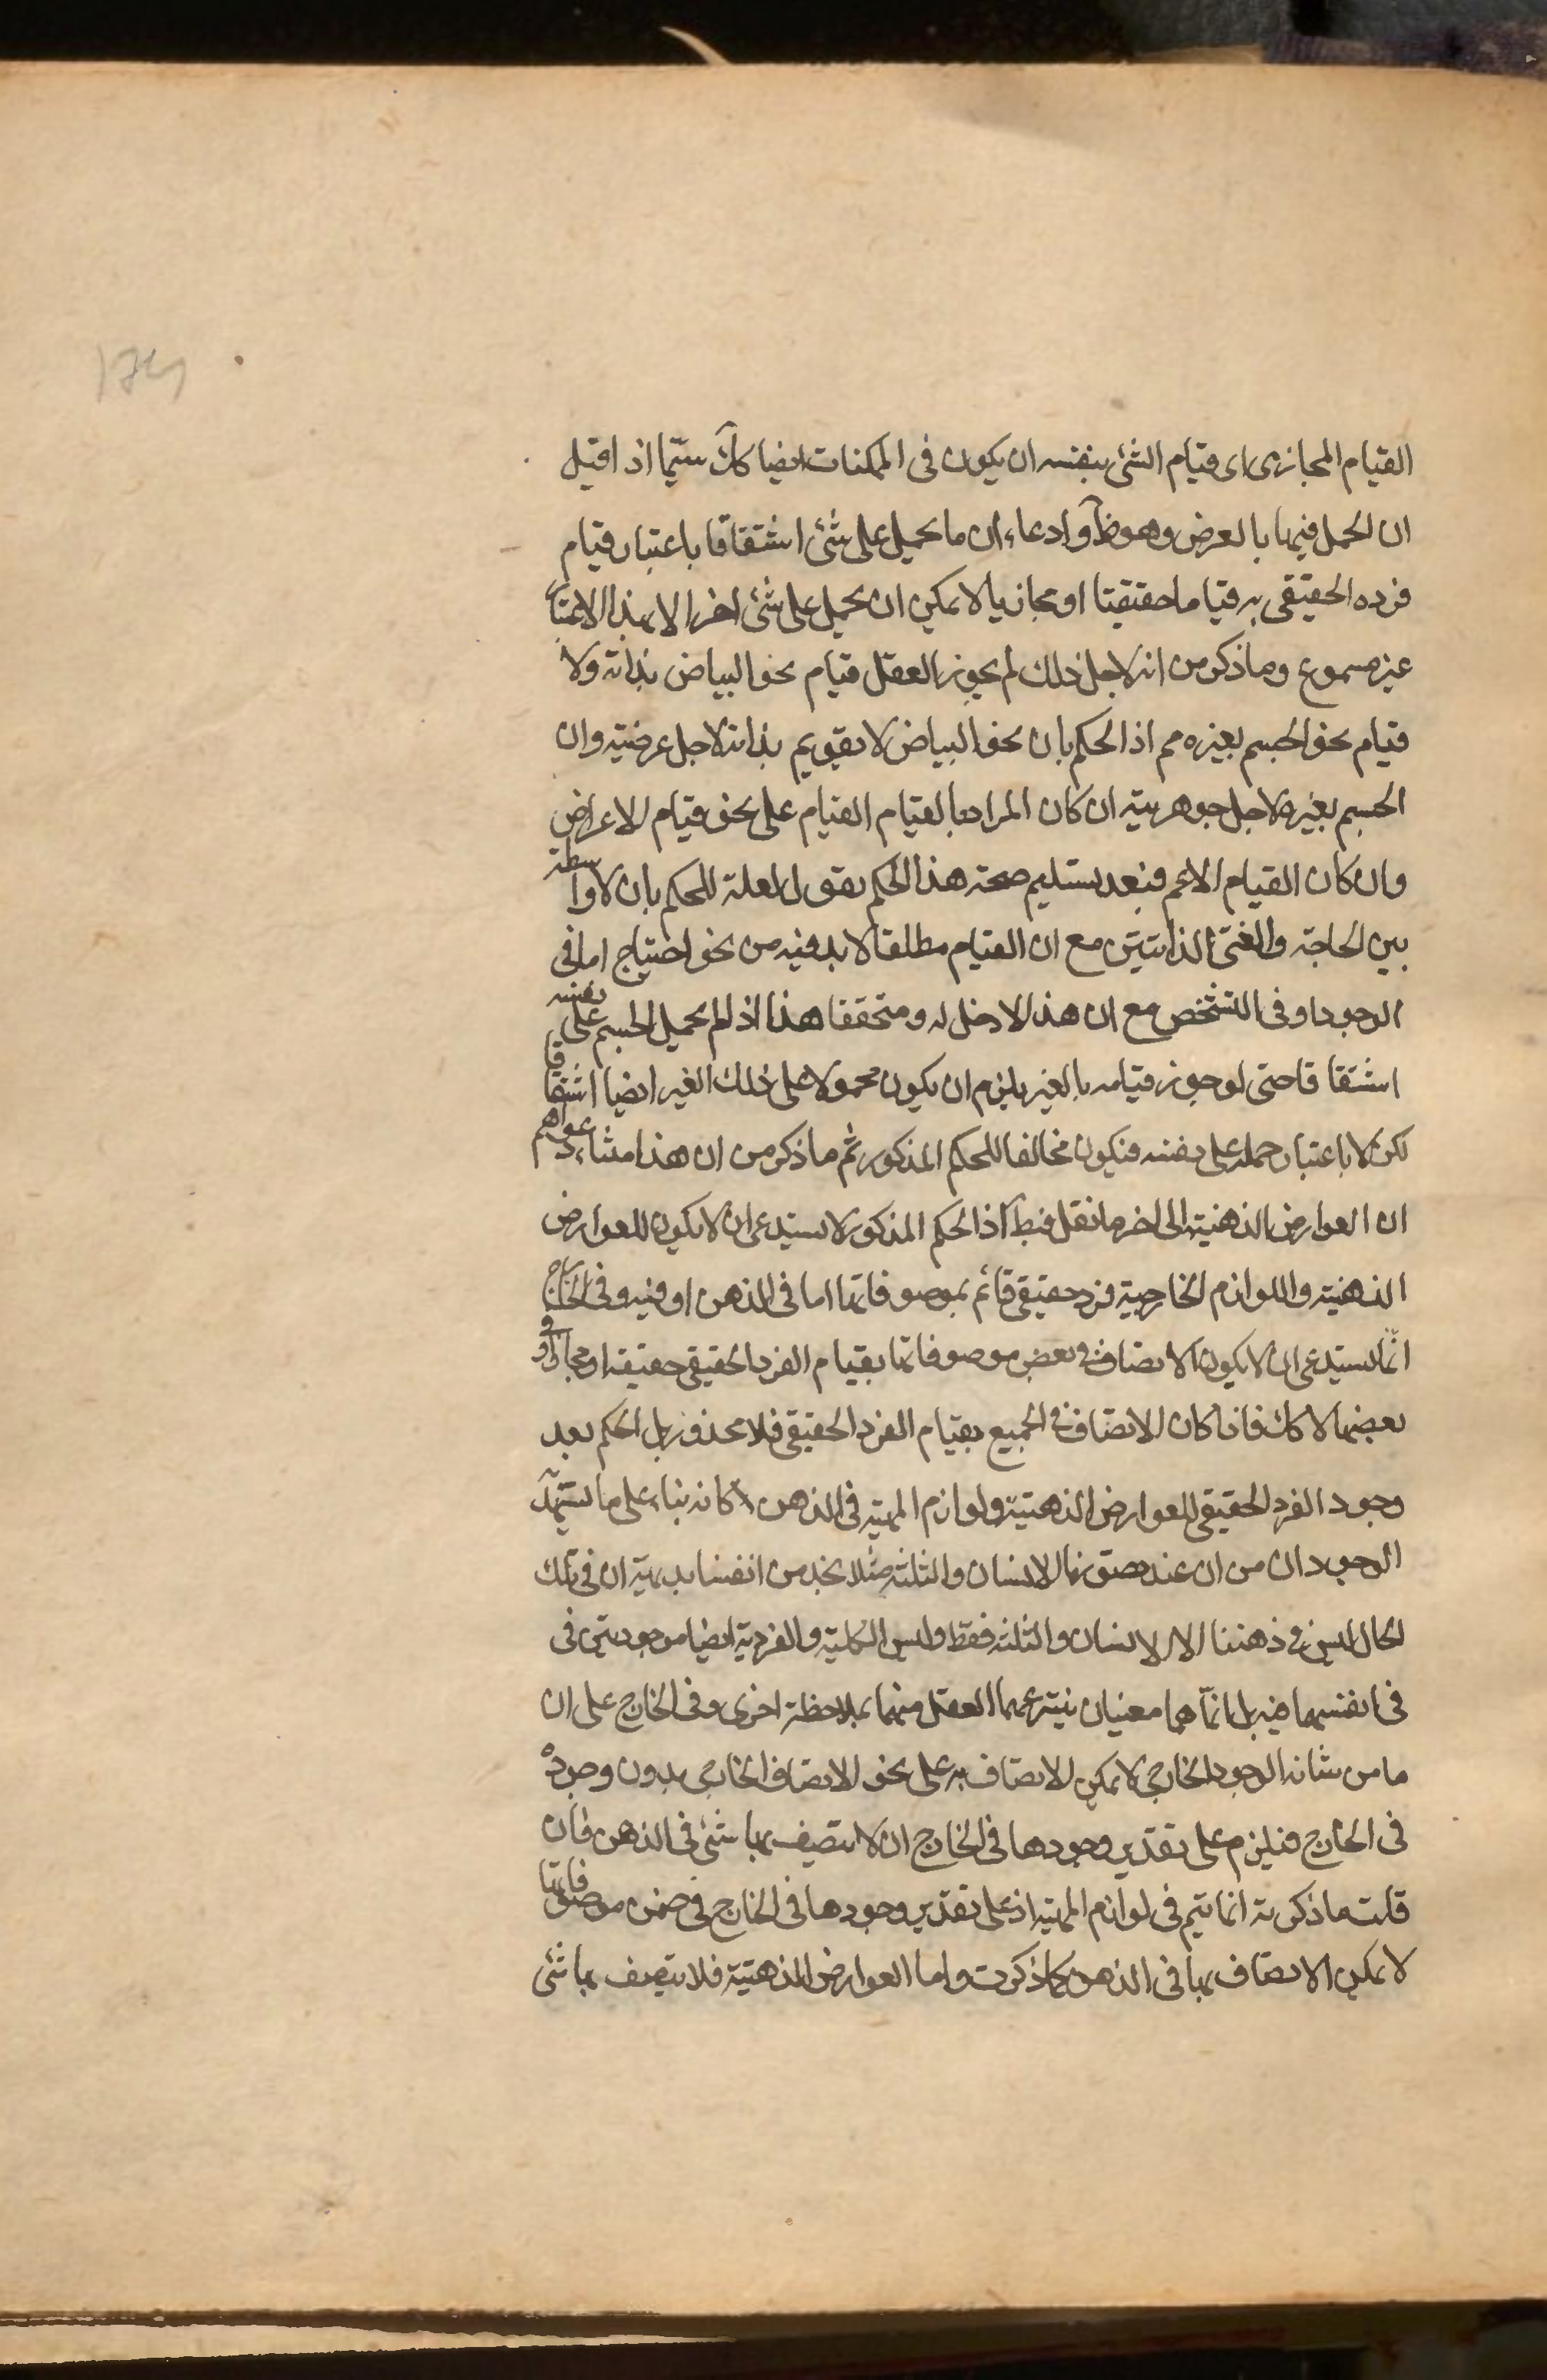 القيام المجازى اى قيام الشئ بنفسه ان يكون فى الممكنات ايضا كك سيّما اذا قيل
ان الحمل فيها بالعرض وهو ظ وادعاء ان ما يحمل على شئ اشتقاقا باعتبار قيام
فرده الحقيقى به قياما حقيقيا او مجازيا لا يمكن ان يحمل على شئ اخر الا بهذا الاعتبار
غير مسموع وما ذكر من انه لاجل ذلك لم يجوز العقل قيام نحو البياض بذاته ولا
قيام نحو الجسم بغيره مم اذ الحكم بان نحو البياض لا يقوم بذاته لاجل عرضيته وان
الجسم بغيره لاجل جوهريته ان كان المراد بالقيام القيام على نحو قيام الاعراض
وان كان القيام الاعم فبعد تسليم صحة هذا الحكم يقول العلة للحكم بان لا واسطة
بين الحاجة والغنى الذاتيين مع ان القيام مطلقا لا بد فيه من نحو احتياج اما فى
الوجود او فى التشخص مع ان هذا لا دخل له ومتحققا هذا اذ لم يحمل الجسم على نفسه
اشتقاقا حتى لو جوز قيامه بالغير يلزم ان يكون محمولا على ذلك الغير ايضا اشتقاقا
لكن لا باعتبار حمله على نفسه فيكون مخالفا للحكم المذكور ثم ما ذكر من ان هذا منشاء دعواهم
ان العوارض الذهنية الى اخر ما نقل فبط اذ الحكم المذكور لا يستدعى ان لا يكون للعوارض
الذهنية واللوازم الخارجية فرد حقيقى قائم بموصوفاتها اما فى الذهن او فيه وفى الخارج
انّما يستدعى ان لا يكون الاتصاف فى بعض موصوفاتها بقيام الفرد الحقيقى حقيقة او مجازا وفى
بعضها لا كك فاذا كان الاتصاف فى الجميع بقيام الفرد الحقيقى فلا محذور بل الحكم بعد
وجود الفرد الحقيقى للعوارض الذهنية ولوازم المهية فى الذهن كانه بناء على ما يشهد
الوجدان من ان عند تصورنا الانسان والثلثة مثلا نجد من انفسنا بديهة ان فى تلك
الحال ليس فى ذهننا الا الانسان والثلثة فقط وليس الكلية والفردية ايضا موجودتين فى
فى انفسهما فيه بل انّما هما معنيان ينتزعهما العقل منهما بملاحظة اخرى وفى الخارج على ان
ما من شانه الوجود الخارجى لا يمكن الاتصاف به على نحو الاتصاف الخارجى بدون وجوده
فى الخارج فيلزم على تقدير وجودها فى الخارج ان لا يتصف بها شئ فى الذهن فان
قلت ما ذكرته انما يتم فى لوازم المهية اذ على تقدير وجودها فى الخارج فى ضمن موصوفاتها
لا يمكن الاتصاف بها فى الذهن كما ذكرت واما العوارض الذهنية فلا يتصف بها شئ